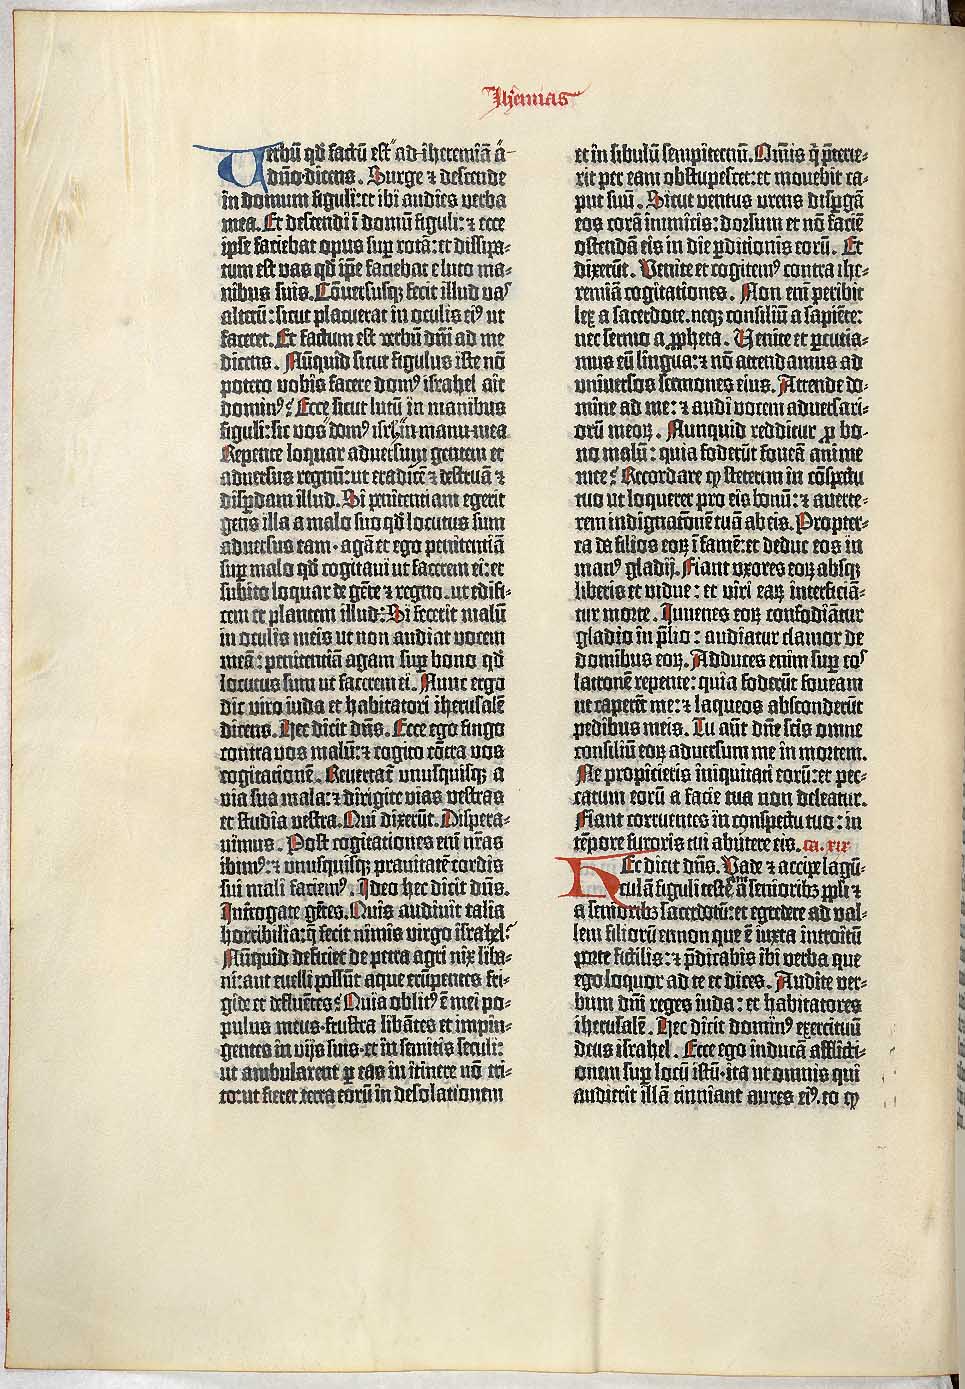 Iheremias
Verbũ qd̃ factũ est ad iheremiã a
dño dicens. Surge ⁊ descende
in domum figuli: et ibi audies verba
mea. Et descendi ĩ domũ figuli: ⁊ ecce
ipse faciebat opus sup̃ rotã: et dissipa-
tum est vas qd̃ ip̃e faciebat e luto ma-
nibus suis. Cõuersusqꝫ fecit illud vas
alterũ: sicut placuerat in oculis eiꝰ ut
faceret. Et factum est verbũ dñi ad me
dicens. Nũquid sicut figulus iste nõ
potero vobis facere domꝰ israhel ait
dominꝰ? Ecce sicut lutũ in manibus
figuli: sic vos domꝰ isrl̃ in manu mea
Repente loquar aduersum gentem et
aduersus regnũ: ut eradicẽ ⁊ destruã ⁊
disꝑdam illud. Si penitentiam egerit
gens illa a malo suo qd̃ locutus sum
aduersus eam · agã et ego penitentiã
sup̃ malo qd̃ cogitaui ut facerem ei: et
subito loquar de gẽte ⁊ regno · ut edifi-
cem et plantem illud: Si fecerit malũ
in oculis meis ut non audiat vocem
meã: penitentiã agam sup̃ bono qd̃
locutus sum ut facerem ei. Nunc ergo
dic viro iuda et habitatori iherusalẽ
dicens. Hec dicit dñs. Ecce ego fingo
contra vos malũ: ⁊ cogito cõtra vos
cogitationẽ. Reuertat᷑ unusquisqꝫ a
via sua mala: ⁊ dirigite vias vestras
et studia vestra. Qui dixerũt. Despera-
uimus. Post cogitationes eni nr̃as
ibimꝰ: ⁊ unusquisqꝫ prauitatẽ cordis
sui mali faciemꝰ. Ideo hec dicit dñs.
Int̃rogate gẽtes. Quis audiuit talia
horribilia: q̃ fecit nimis virgo israhel?
Nũquid deficiet de petra agri nix liba-
ni: aut euelli possũt aque erũpentes fri-
gide et defluẽtes? Quia oblitꝰ ẽ mei po-
pulus meus · frustra libãtes et impin-
gentes in vijs suis · et in semitis seculi:
ut ambularent ꝑ eas in itinere nõ tri-
to: ut fieret terra eorũ in desolationem
et in sibulũ sempiternũ. Om̃is q̃ p̃terie-
rit per eam obstupescet: et mouebit ca-
put suũ. Sicut ventus urens disp̃gã
eos corã inimicis: dorsum et nõ faciẽ
ostendã eis in die ꝑditionis eorũ. Et
dixerũt. Venite et cogitemꝰ contra ihe-
remiã cogitationes. Non eni peribit
lex a sacerdote · neqꝫ consiliũ a sapiẽte:
nec sermo a ꝓpheta. Venite et ꝑcutia-
mus eũ lingua: ⁊ nõ attendamus ad
vniuersos sermones eius. Attende do-
mine ad me: ⁊ audi vocem aduersari-
orũ meoꝝ. Nunquid redditur ꝓ bo-
no malũ: quia foderũt foueã anime
mee? Recordare ꝙ steterim in cõspectu
tuo ut loquerer pro eis bonũ: ⁊ auerte-
rem indignatõnẽ tuã ab eis. Propter-
ea da filios eoꝝ ĩ famẽ: et deduc eos in
manꝰ gladij. Fiant vxores eoꝝ absqꝫ
liberis et vidue: et viri eaꝝ interficiã-
tur morte. Iuuenes eoꝝ confodiãtur
gladio in p̃lio: audiatur clamor de
domibus eoꝝ. Adduces enim sup̃ eos
latronẽ repente: quia foderũt foueam
ut caperẽt me: ⁊ laqueos absconderũt
pedibus meis. Tu aũt dñe scis omne
consiliũ eoꝝ aduersum me in mortem.
Ne propicieris iniquitati eorũ: et pec-
catum eorũ a facie tua non deleatur.
Fiant corruentes in conspectu tuo: in
tẽpore furoris tui abutere eis. ca. xix
Hec dicit dñs. Vade ⁊ accipe lagũ-
culã figuli testeã a senioribꝫ pp̃li ⁊
a senioribꝫ sacerdotũ: et egredere ad val-
lem filiorũ ennon que ẽ iuxta introitũ
porte fictilis: ⁊ p̃dicabis ibi verba que
ego loquor ad te et dices. Audite ver-
bum dñi reges iuda: et habitatores
iherusalẽ. Hec dicit dominꝰ exercituũ
deus israhel. Ecce ego inducã afflicti-
onem sup̃ locũ istũ · ita ut omnis qui
audierit illã tinniant aures eiꝰ. eo ꝙ